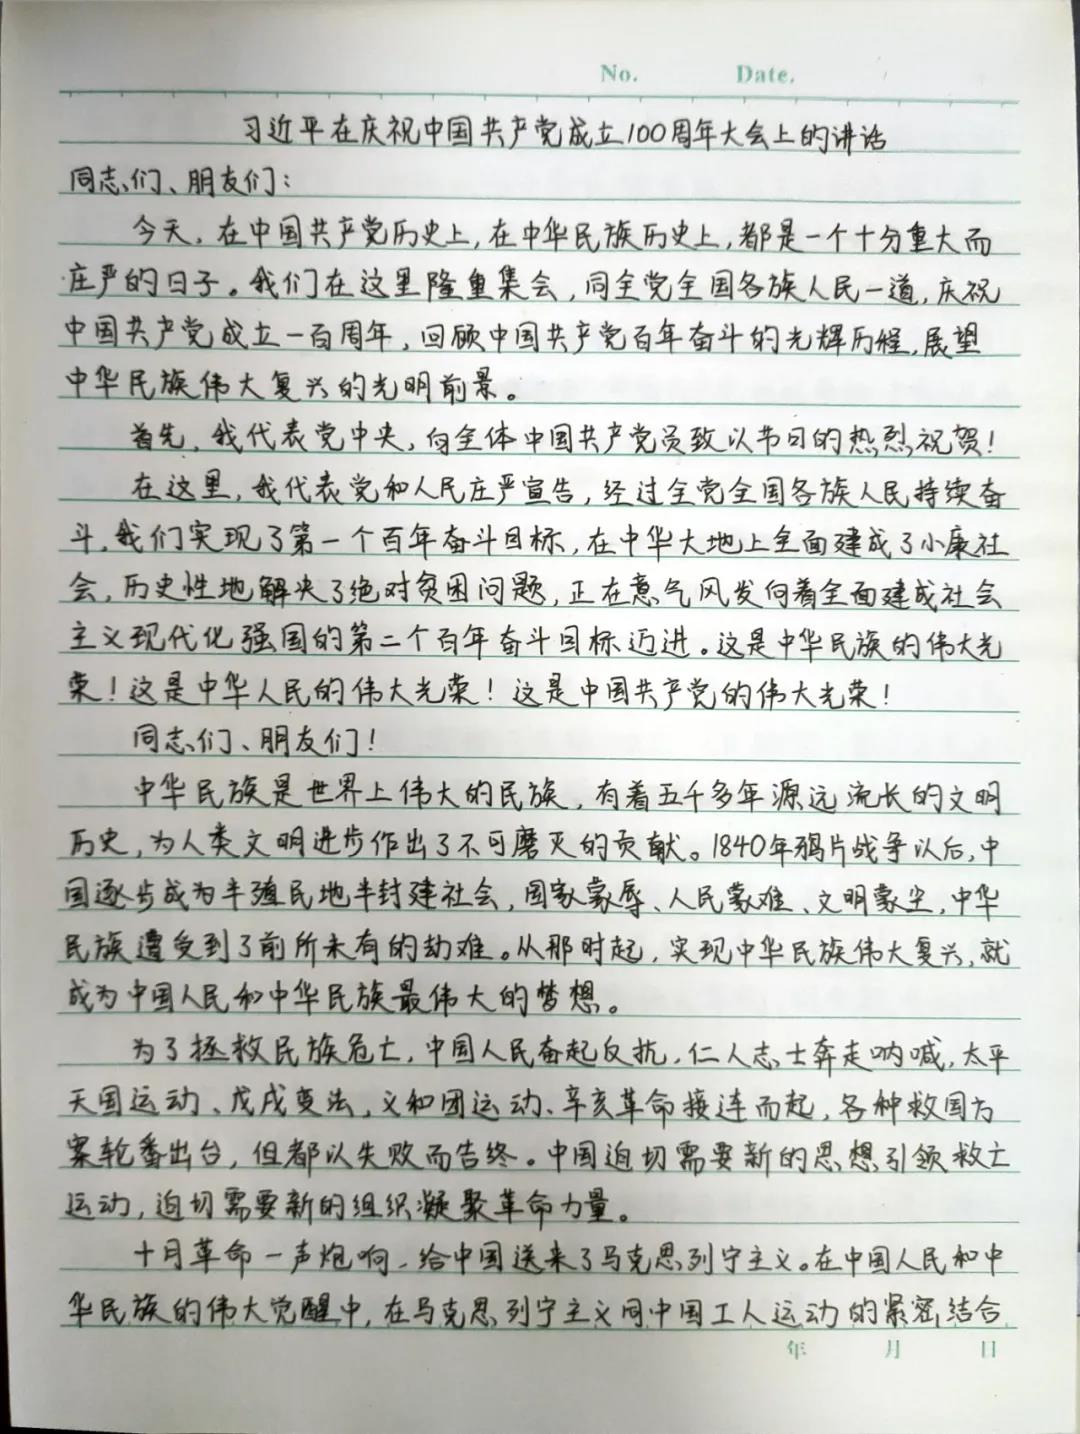 No. Date.
习近平在庆祝中国共产党成立100周年大会上的讲话
同志们、朋友们：
今天，在中国共产党历史上，在中华民族历史上，都是一个十分重大而
庄严的日子。我们在这里隆重集会，同全党全国各族人民一道，庆祝
中国共产党成立一百周年，回顾中国共产党百年奋斗的光辉历程，展望
中华民族伟大复兴的光明前景。
首先，我代表党中央，向全体中国共产党员致以节日的热烈祝贺！
在这里，我代表党和人民庄严宣告，经过全党全国各族人民持续奋
斗，我们实现了第一个百年奋斗目标，在中华大地上全面建成了小康社
会，历史性地解决了绝对贫困问题，正在意气风发向着全面建成社会
主义现代化强国的第二个百年奋斗目标迈进。这是中华民族的伟大光
荣！这是中华人民的伟大光荣！这是中国共产党的伟大光荣！
同志们、朋友们！
中华民族是世界上伟大的民族，有着五千多年源远流长的文明
历史，为人类文明进步作出了不可磨灭的贡献。1840年鸦片战争以后，中
国逐步成为半殖民地半封建社会，国家蒙辱、人民蒙难、文明蒙尘，中华
民族遭受到了前所未有的劫难。从那时起，实现中华民族伟大复兴，就
成为中国人民和中华民族最伟大的梦想。
为了拯救民族危亡，中国人民奋起反抗，仁人志士奔走呐喊，太平
天国运动、戊戌变法、义和团运动、辛亥革命接连而起，各种救国方
案轮番出台，但都以失败而告终。中国迫切需要新的思想引领救亡
运动，迫切需要新的组织凝聚革命力量。
十月革命一声炮响，给中国送来了马克思列宁主义。在中国人民和中
华民族的伟大觉醒中，在马克思列宁主义同中国工人运动的紧密结合
年 月 日